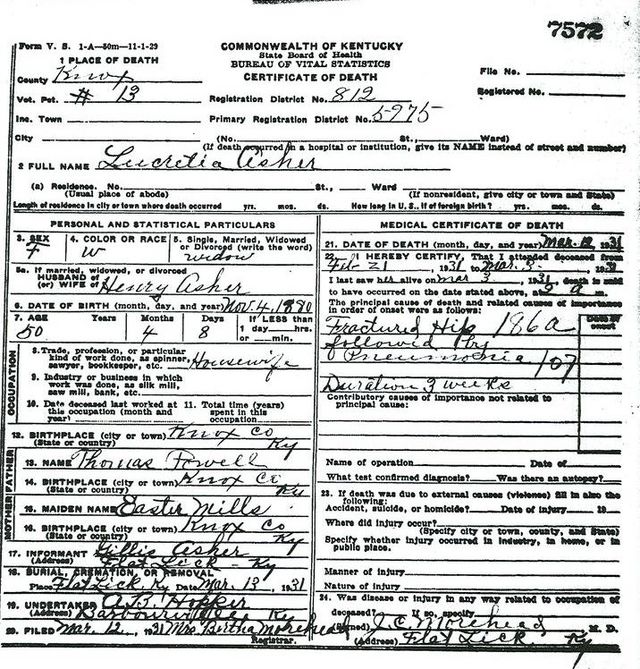 7572
Form V. S. 1-A—50m—11-1-29
COMMONWEALTH OF KENTUCKY
State Board of Health
BUREAU OF VITAL STATISTICS
CERTIFICATE OF DEATH
1 PLACE OF DEATH
County Knox
File No.
Registered No.
Vot. Pct. # 13
Registration District No. 812
Inc. Town
Primary Registration District No. 5975
City (No. St., Ward)
(If death occurred in a hospital or institution, give its NAME instead of street and number)
2 FULL NAME Lucretia Asher
(a) Residence. No. St., Ward
(Usual place of abode) (If nonresident, give city or town and State)
Length of residence in city or town where death occurred yrs. mos. ds. How long in U. S., if of foreign birth? yrs. mos. ds.
PERSONAL AND STATISTICAL PARTICULARS
3. SEX F
4. COLOR OR RACE W
5. Single, Married, Widowed or Divorced (write the word) widow
5a. If married, widowed, or divorced
HUSBAND of
(or) WIFE of Henry Asher
6. DATE OF BIRTH (month, day, and year) Nov. 4, 1880
7. AGE Years Months Days If LESS than
50 4 8 1 day—hrs.
or—min.
OCCUPATION
8. Trade, profession, or particular
kind of work done, as spinner,
sawyer, bookkeeper, etc. Housewife
9. Industry or business in which
work was done, as silk mill,
saw mill, bank, etc.
10. Date deceased last worked at this occupation (month and year)
11. Total time (years) spent in this occupation
12. BIRTHPLACE (city or town) Knox Co
(State or country) Ky
FATHER
13. NAME Thomas Powell
14. BIRTHPLACE (city or town) Knox Co
(State or country) Ky
MOTHER
15. MAIDEN NAME Easter Mills
16. BIRTHPLACE (city or town) Knox Co
(State or country) Ky
17. INFORMANT Asher
(Address) Flat Lick - Ky
18. BURIAL, CREMATION, OR REMOVAL
Place Flat Lick, Ky Date Mar. 13, 1931
19. UNDERTAKER A.B. Hopper
(Address) Ky
20. FILED Mar. 12, 1931 Mrs. Bertha Morehead
Registrar.
MEDICAL CERTIFICATE OF DEATH
21. DATE OF DEATH (month, day, and year) Mar. 12, 1931
22. I HEREBY CERTIFY, That I attended deceased from
Feb 21, 1931 to Mar. 8, 1931
I last saw her alive on Mar 3, 1931, death is said
to have occurred on the date stated above, at 9 a.
The principal cause of death and related causes of importance
in order of onset were as follows: Date of onset
Fractured Hip 186a
followed by
Pneumonia 107
Duration 3 weeks
Contributory causes of importance not related to
principal cause:
Name of operation Date of
What test confirmed diagnosis? Was there an autopsy?
23. If death was due to external causes (violence) fill in also the
following:
Accident, suicide, or homicide? Date of injury 19
Where did injury occur?
(Specify city or town, county, and State)
Specify whether injury occurred in industry, in home, or in
public place.
Manner of injury
Nature of injury
24. Was disease or injury in any way related to occupation of
deceased? If so, specify
J.C. Morehead M. D.
(Address) Flat Lick Ky